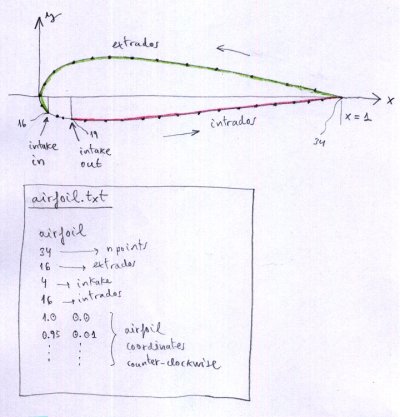 y
extrados
x
16
19
intrados
x=1
34
intake in
intake out
airfoil.txt
airfoil
34 → n points
16 → extrados
4 → intake
16 → intrados
1.0 0.0
0.95 0.01 airfoil
: : coordinates
counter-clockwise